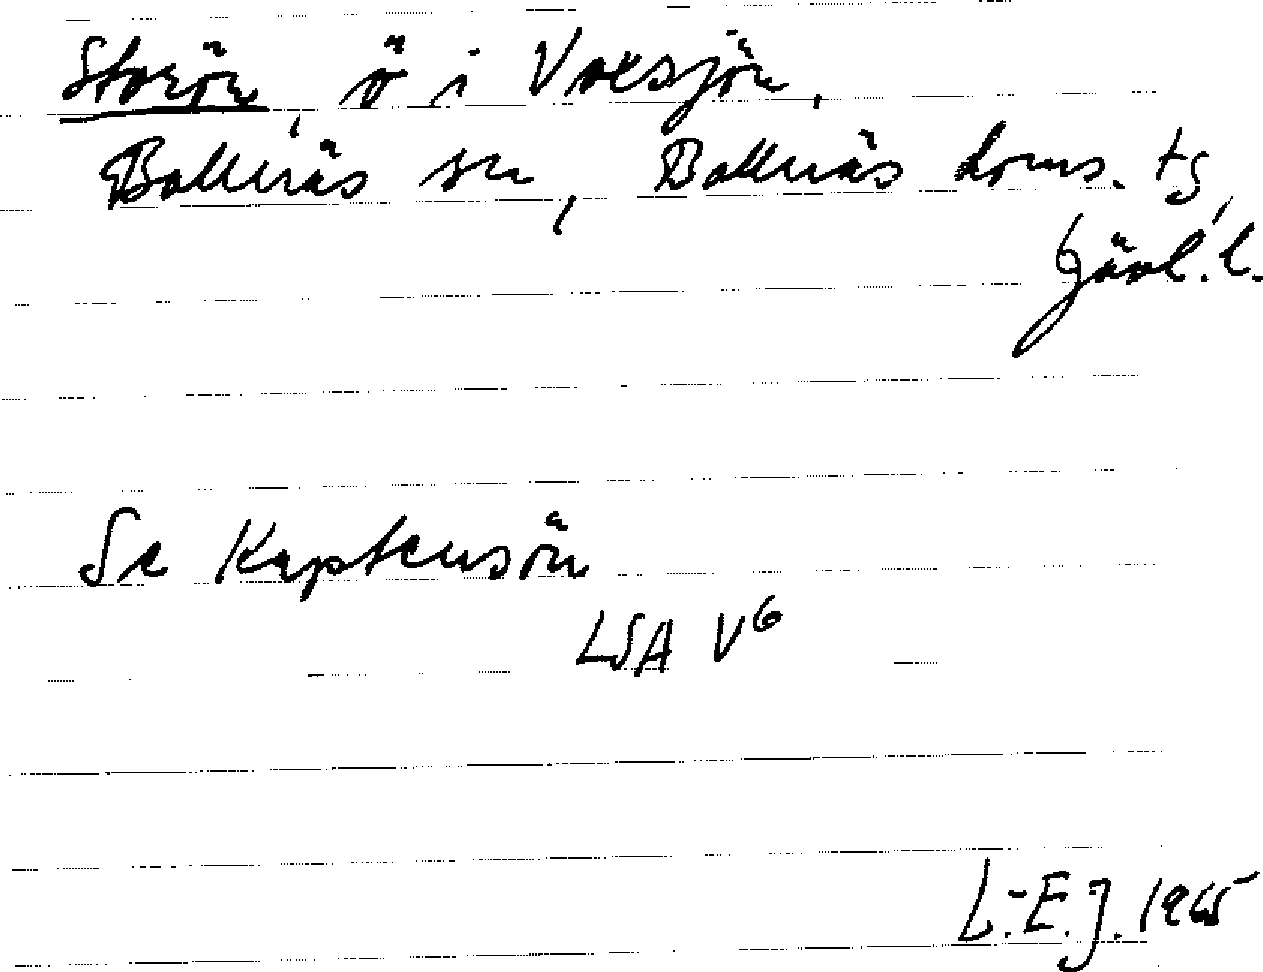 Storön, ö i Voxsjön,
Bollnäs sn, Bollnäs doms. tg,
Gävl. l.
Se Kaptensön
LSA V6
L.-E. J. 1965